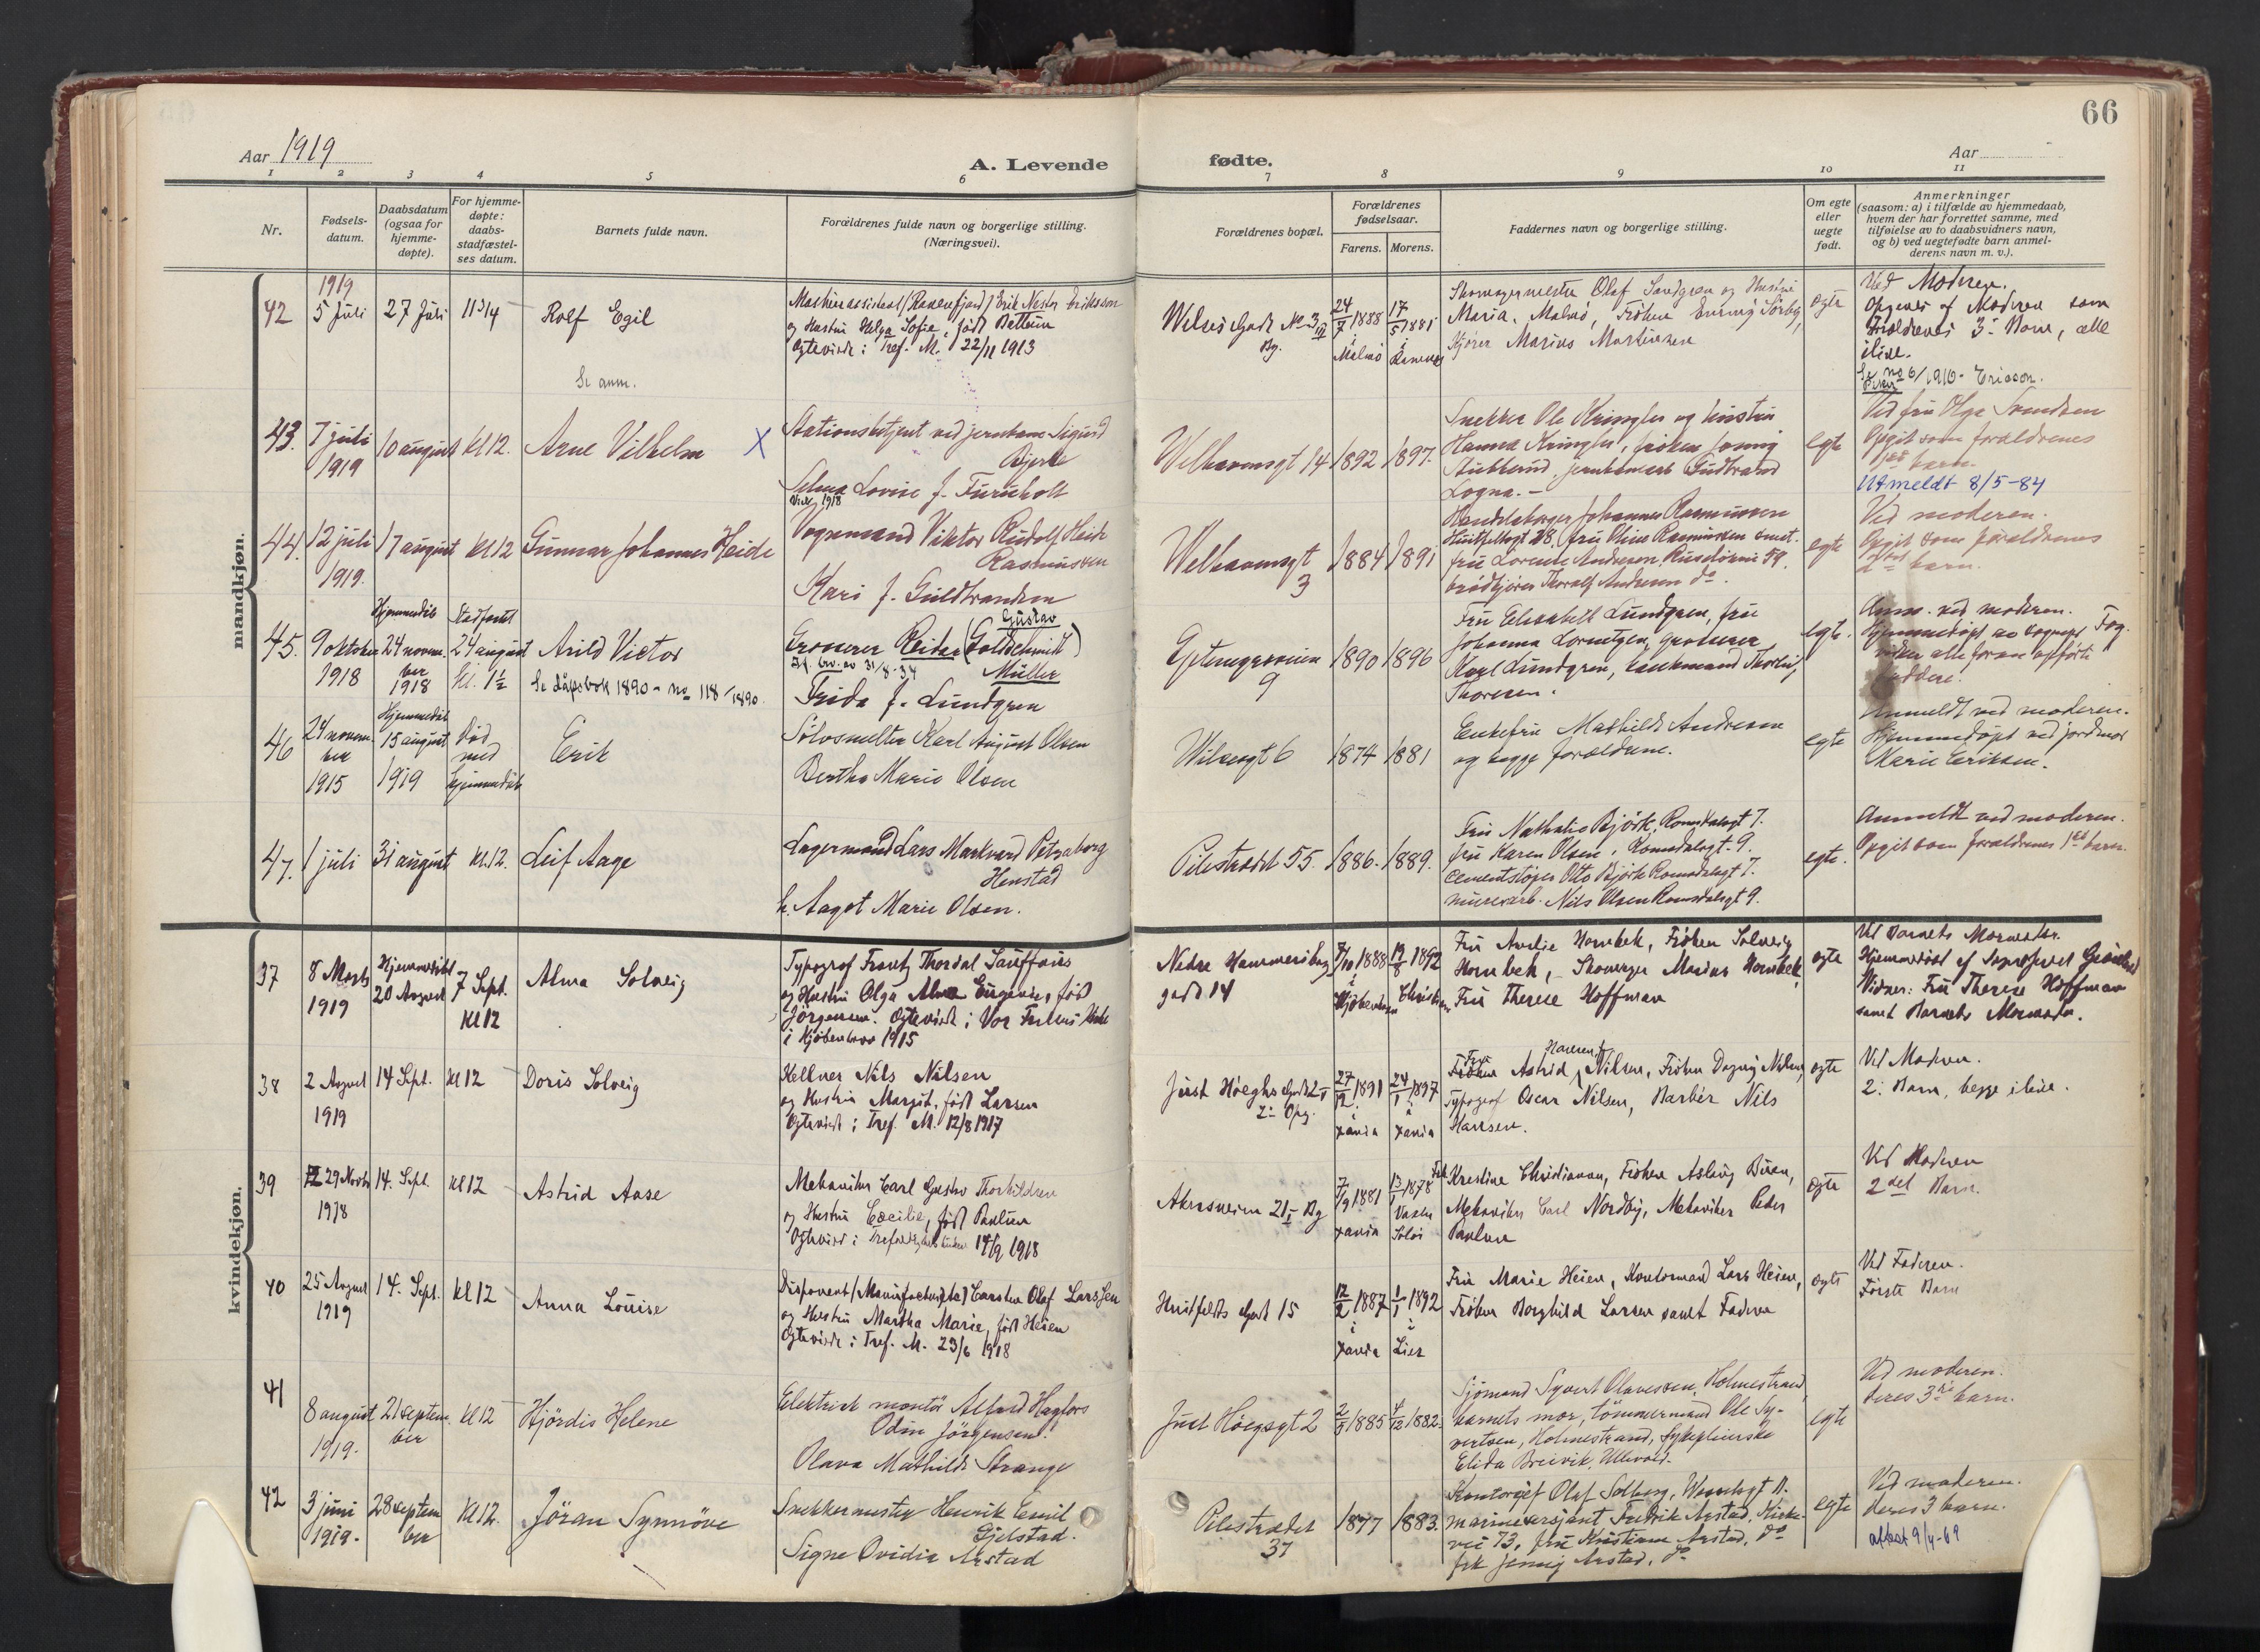 66
Aar 1919
A. Levende
fødte.
Aar
1 2 3 4 5 6 7 8 9 10 11
Nr.
Fødsels-
datum.
Daabsdatum
(ogsaa for
hjemme-
døpte).
For hjemme-
døpte:
daabs-
stadfæstel-
ses datum.
Barnets fulde navn.
Forældrenes fulde navn og borgerlige stilling.
(Næringsvei).
Forældrenes bopæl.
Forældrenes
fødselsaar.
Farens. Morens.
Faddernes navn og borgerlige stilling.
Om egte
eller
uegte
født.
Anmerkninger
(saasom: a) i tilfælde av hjemmedaab,
hvem der har forrettet samme, med
tilføielse av to daabsvidners navn,
og b) ved uegtefødte barn anmel-
derens navn m. v.).
mandkjøn.
42
1919
5 Juli
27 Juli
11 3/4
Rolf Egil
Se anm.
Erik Nestor Eriksson
og Hustru Helga Sofie, født Bettum
Ogteviede i Tref. M. 22/11 1913
24/7 1888
17/5 1881
i Malmø
Olaf Sandgren og Hustru
Maria, Malmø, Frøken Sørby,
Kjører Marius Martinsen
ogte
Ved Moderen.
Opgives af Moderen som
Forældrenes 3. Barn, alle
ilive.
Se no 6/1910 - Ericson.
43.
7 juli
1919
10 august
kl 12.
Arne Vilhelm X
Stationsbetjent ved jernbane Sigurd
Bjerke
Selma Lovise f. Furuholt
Viet 1918
Welhavensgt 14
1892
1897.
Snekker Ole Kringler og hustru
Hanna Kringler, frøken Jenny
Stubberud, Gudbrand
Logna. -
egte
Ved fru Olga Svendsen
Opgit som forældrenes
1ste barn.
Utmeldt 8/5-84
44.
12 juli
1919.
17 august
kl 12
Gunnar Johannes Heide
Vognmand Viktor Rudolf Heide
Rasmussen
Kari f. Guldbrandsen
Welhavensgt
3
1884
1891
Handelsborger Johannes Rasmussen
Huitfeldtsgt 28, fru Oline Rasmussen samt.
fru Lorentse Andersen, 59,
brødkjører Thoralf Andersen do.
egte
Ved moderen.
Opgit som forældrenes
barn.
45.
9 oktober
1918
Hjemmedøbt
24 novem-
ber
1918
Stadfæstet
24 august
kl. 1½
Arild Victor
Se dåpsbok 1890 - no 118/1890.
Gustav
Grosserer Reider (Goldschmidt)
31/8-34
Müller
Frida f. Lundgren
9
1890
1896
Fru Elisabeth Lundgren, fru
Johanna Lorentzen, grosserer
Karl Lundgren,
Thoresen.
egte.
Anm. ved moderen.
Hjemmedøpt av sogneprest
faddere.
46
24 novem-
ber
1915
Hjemmedøbt
15 august
1919
Død
med
hjemmedåb
Erik
Sølvsmelter Karl August Olsen
Bertha Marie Olsen
Wilsesgt 6
1874
1881
Enkefru Mathilde Andresen
og begge forældrene.
egte
Anmeldt ved moderen.
Hjemmedøpt ved jordmor
Marie Eriksen.
47.
1 juli
31 august
kl. 12.
Leif Aage
Lagermand Lars Markvard Petraborg
Henstad
h. Aagot Marie Olsen.
Pilestrædet 55.
1886.
1889.
Fru Nathalie Bjørk, Romsdalsgt 7.
fru Karen Olsen, Romsdalsgt. 9.
cementstøper Otto Bjørk Romsdalsgt 7.
murerarb. Nils Olsen Romsdalsgt 9.
egte.
Anmeldt ved moderen.
Opgit som forældrenes 1ste barn.
kvindekjøn.
37
8 Marts
1919
Hjemmedøbt
20 August
7 Sept.
Kl 12
Alma Solveig
Typograf Frantz Thordal Sauffaus
og Hustru Olga Alma Eugenie, født
Jørgensen. Ogteviede i Vor Frelsers Kirke
i Kjøbenhavn 1915
Nedre Hammersborg
gade 14
7/10 1888
19/8 1892
i Kjøbenhavn
Fru Amelie Hornbek, Frøken Solveig
Hornbek, Skomager Marius Hornbek,
Fru Therese Hoffman
ogte
Ved Barnets Mormoder.
Hjemmedøbt af Sognepræst
Vidner: Fru Therese Hoffman
samt Barnets Mormoder.
38
2 August
1919
14 Sept.
Kl 12
Doris Solveig
Kellner Nils Nilsen
og Hustru Margit, født Larsen
Ogteviede i Tref. M. 12/8 1917
Just Høeghs Gade 2
2. Opg.
27/12 1891
24/1 1897
i Xania
i Xania
Fru Astrid Hansen f. Nilsen, Frøken Dagny Nilsen,
Typograf Oscar Nilsen, Barbér Nils
Hansen.
ogte
Ved Moderen.
2. Barn, begge ilive.
39
29 Novbr
1918
14. Sept.
Kl 12
Astrid Aase
Mekaniker Carl Gustav Thorkildsen
og Hustru Cecilie, født Paulsen
Ogteviede i Trefoldighedskirken 14/9 1918
Akersveien 21 I Bg
7/9 1881
13/1 1878
Xania
Solør
Frk Kristine Christiansen, Frøken Aslaug Buan,
Mekaniker Carl Nordby, Mekaniker Peder
Paulsen
ogte
Ved Moderen
2det Barn.
40
25 August
1919
14. Sept.
Kl 12
Anna Louise
Disponent (Manufacturist) Carsten Olaf Larssen
og Hustru Martha Marie, født Heien
Ogteviede i Tref. M. 23/6 1918
Huitfeldts Gade 15
12/2 1887
1/1 1892
i Xania
i Lier
Fru Marie Heien, Kontormand Lars Heien,
Frøken Borghild Larsen samt Faderen
ogte
Ved Faderen.
Første Barn
41
8 august
1919.
21 septem-
ber
kl 12
Hjørdis Helene
Elektrisk montør Alfred
Odin Jørgensen.
Olava Mathilde Strange
Just Høegsgt 2
2/3 1885
4/12 1882.
Sjømand Syvert Olavessen, Holmestrand,
barnets mor, tømmermand Ole Sy-
vertsen, Holmestrand, sykepleierske
Elida Breivik, Ullevold.
egte
Ved moderen.
deres 3die barn.
42
3 juni
1919.
28 septem-
ber
kl 12.
Jöran Synnöve
Snekkermester Henrik Emil
Gjelstad.
Signe Ovidia Arstad
Pilestrædet
37
1877
1883.
Kontorsjef Olaf Solberg,
marinesersjant Fredrik Arstad, Kirke-
vei 73, fru Kristiane Arstad, do
frk Jenny Arstad, do
egte
Ved moderen.
deres 3 barn.
attest 9/4-69